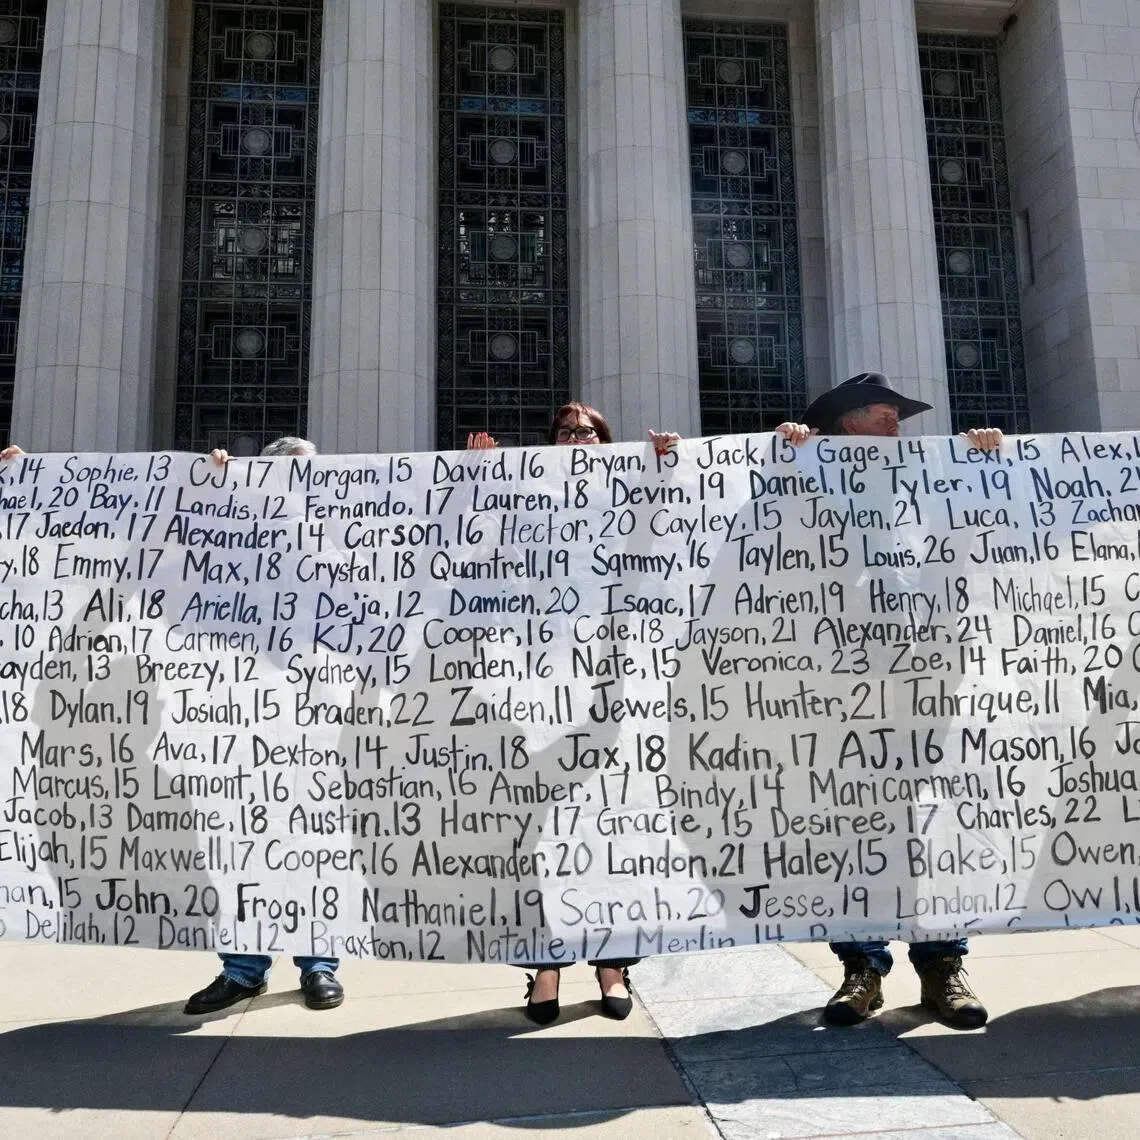 14 Sophie, 13 CJ, 17 Morgan, 15 David, 16 Bryan, 15 Jack, 15 Gage, 14 Lexi, 15 Alex,
20 Bay, 11 Landis, 12 Fernando, 17 Lauren, 18 Devin, 19 Daniel, 16 Tyler, 19 Noah,
17 Jaedon, 17 Alexander, 14 Carson, 16 Hector, 20 Cayley, 15 Jaylen, 21 Luca, 13
18 Emmy, 17 Max, 18 Crystal, 18 Quantrell, 19 Sammy, 16 Taylen, 15 Louis, 26 Juan, 16 Elana,
13 Ali, 18 Ariella, 13 De'ja, 12 Damien, 20 Isaac, 17 Adrien, 19 Henry, 18 Michael, 15
10 Adrian, 17 Carmen, 16 KJ, 20 Cooper, 16 Cole, 18 Jayson, 21 Alexander, 24 Daniel, 16
13 Breezy, 12 Sydney, 15 Londen, 16 Nate, 15 Veronica, 23 Zoe, 14 Faith, 20
18 Dylan, 19 Josiah, 15 Braden, 22 Zaiden, 11 Jewels, 15 Hunter, 21 Tahrique, 11 Mia,
Mars, 16 Ava, 17 Dexton, 14 Justin, 18 Jax, 18 Kadin, 17 AJ, 16 Mason, 16
Marcus, 15 Lamont, 16 Sebastian, 16 Amber, 17 Bindy, 14 Maricarmen, 16 Joshua
Jacob, 13 Damone, 18 Austin, 13 Harry, 17 Gracie, 15 Desiree, 17 Charles, 22
Elijah, 15 Maxwell, 17 Cooper, 16 Alexander, 20 Landon, 21 Haley, 15 Blake, 15 Owen,
15 John, 20 Frog, 18 Nathaniel, 19 Sarah, 20 Jesse, 19 London, 12
Delilah, 12 Daniel, 12 Braxton, 12 Natalie, 17 Merlin, 14